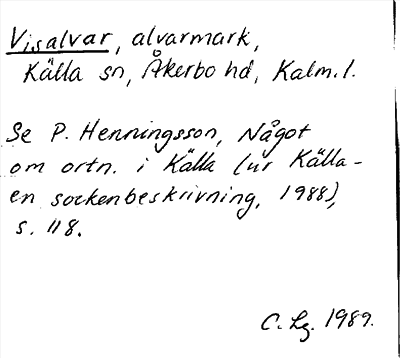 Visalvar, alvarmark,
Källa sn, Åkerbo hd, Kalm. l.
Se P. Henningsson, Något
om ortn. i Källa (ur Källa -
en sockenbeskrivning, 1988),
s. 118.
C. Lg. 1989.